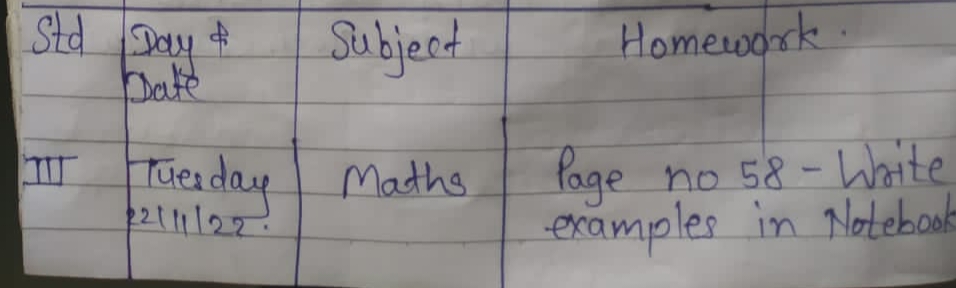 Std Day & Subject Homework.
Date
III Tuesday Maths Page no 58 - Write
22/11/22. examples in Notebook